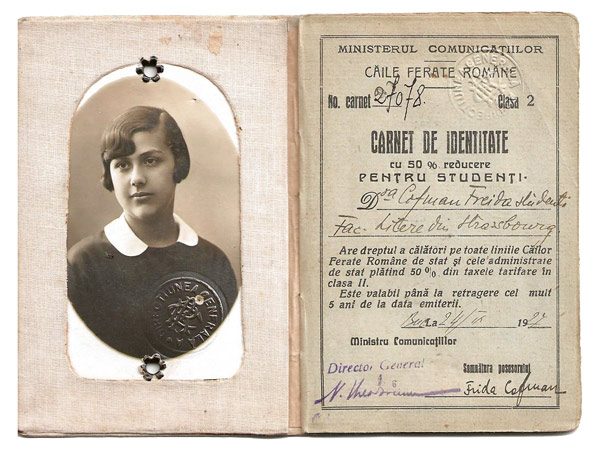 MINISTERUL COMUNICAȚIILOR
CĂILE FERATE ROMÂNE
No. carnet 27078. Clasa 2
CARNET DE IDENTITATE
cu 50 % reducere
PENTRU STUDENȚI
Dra Cofman Freida studentă
Fac. Litere din Strasbourg.
Are dreptul a călători pe toate liniile Căilor
Ferate Române de stat și cele administrate
de stat plătind 50% din taxele tarifare în
clasa II.
Este valabil până la retragere cel mult
5 ani de la data emiterii.
Buc La 24/IX 1927
Ministru Comunicațiilor
Director General
Semnătura posesorului
Frida Cofman
DIRECȚIUNEA GENERALĂ